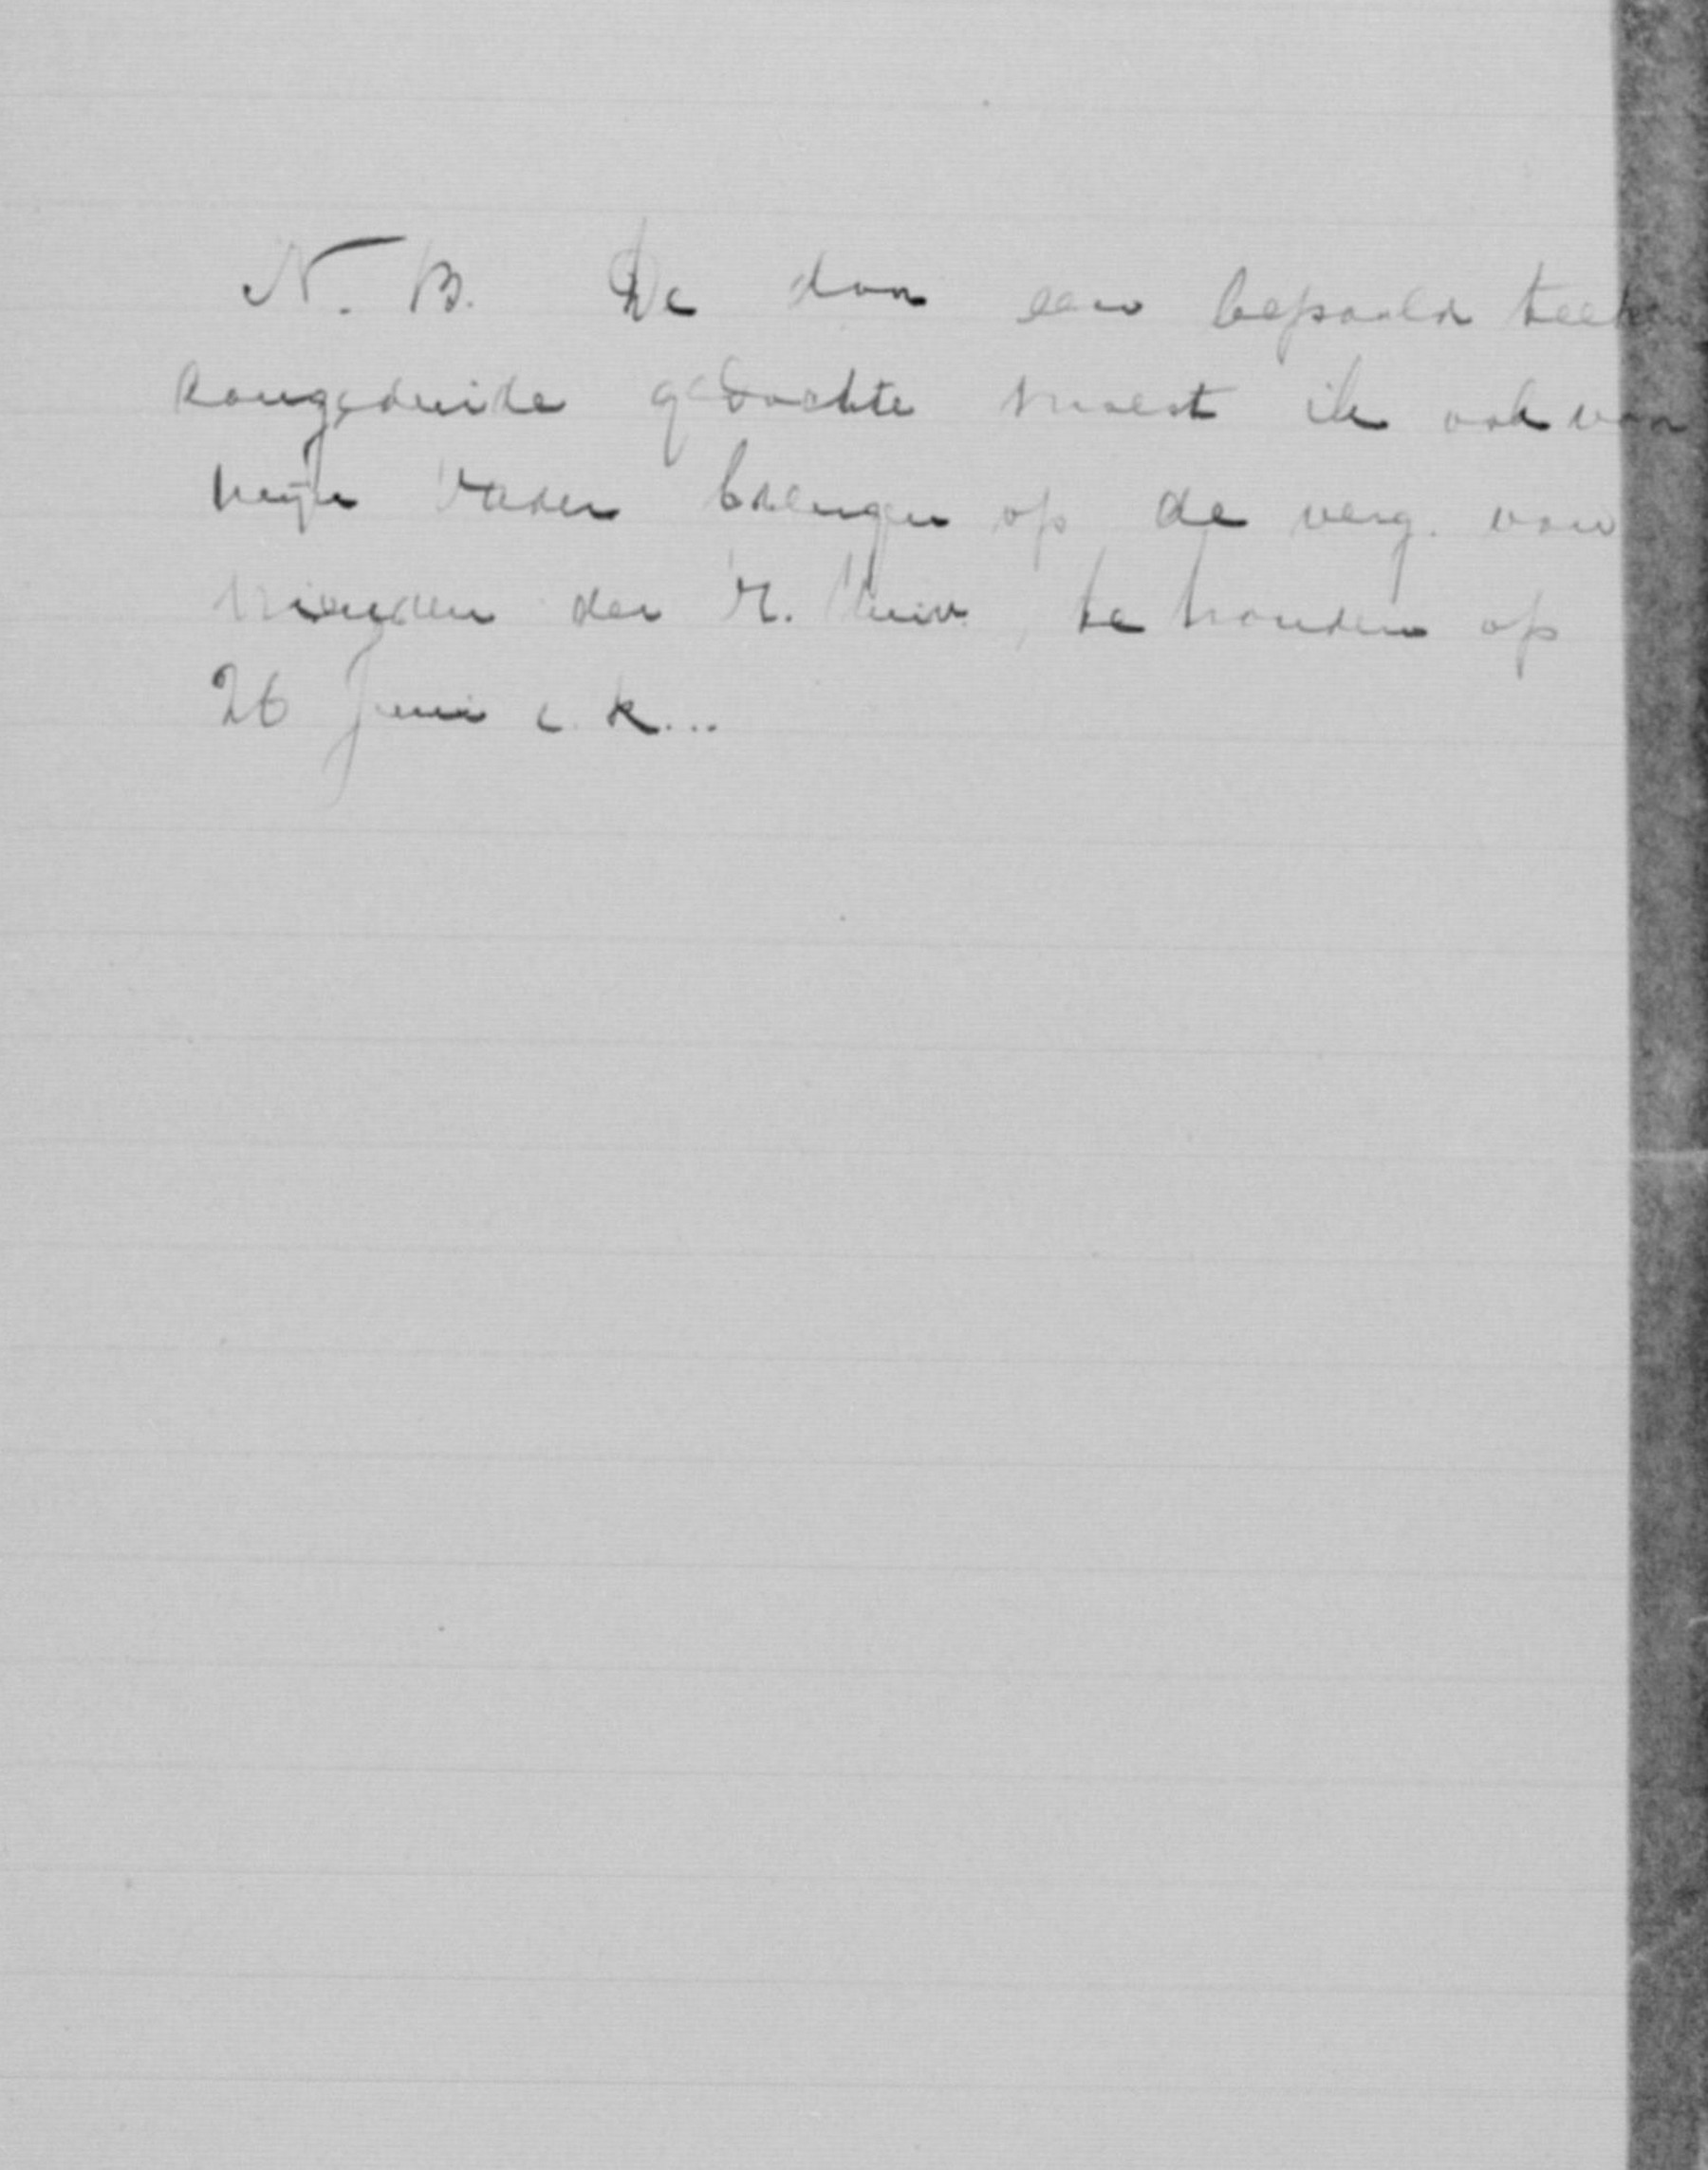 N. B. De door een bepaald teeken
aangeduide gedachte moest ik ook van
mijn Vader brengen op de verg. van
vrienden der V. Univ., te houden op
26 Juni e. k...